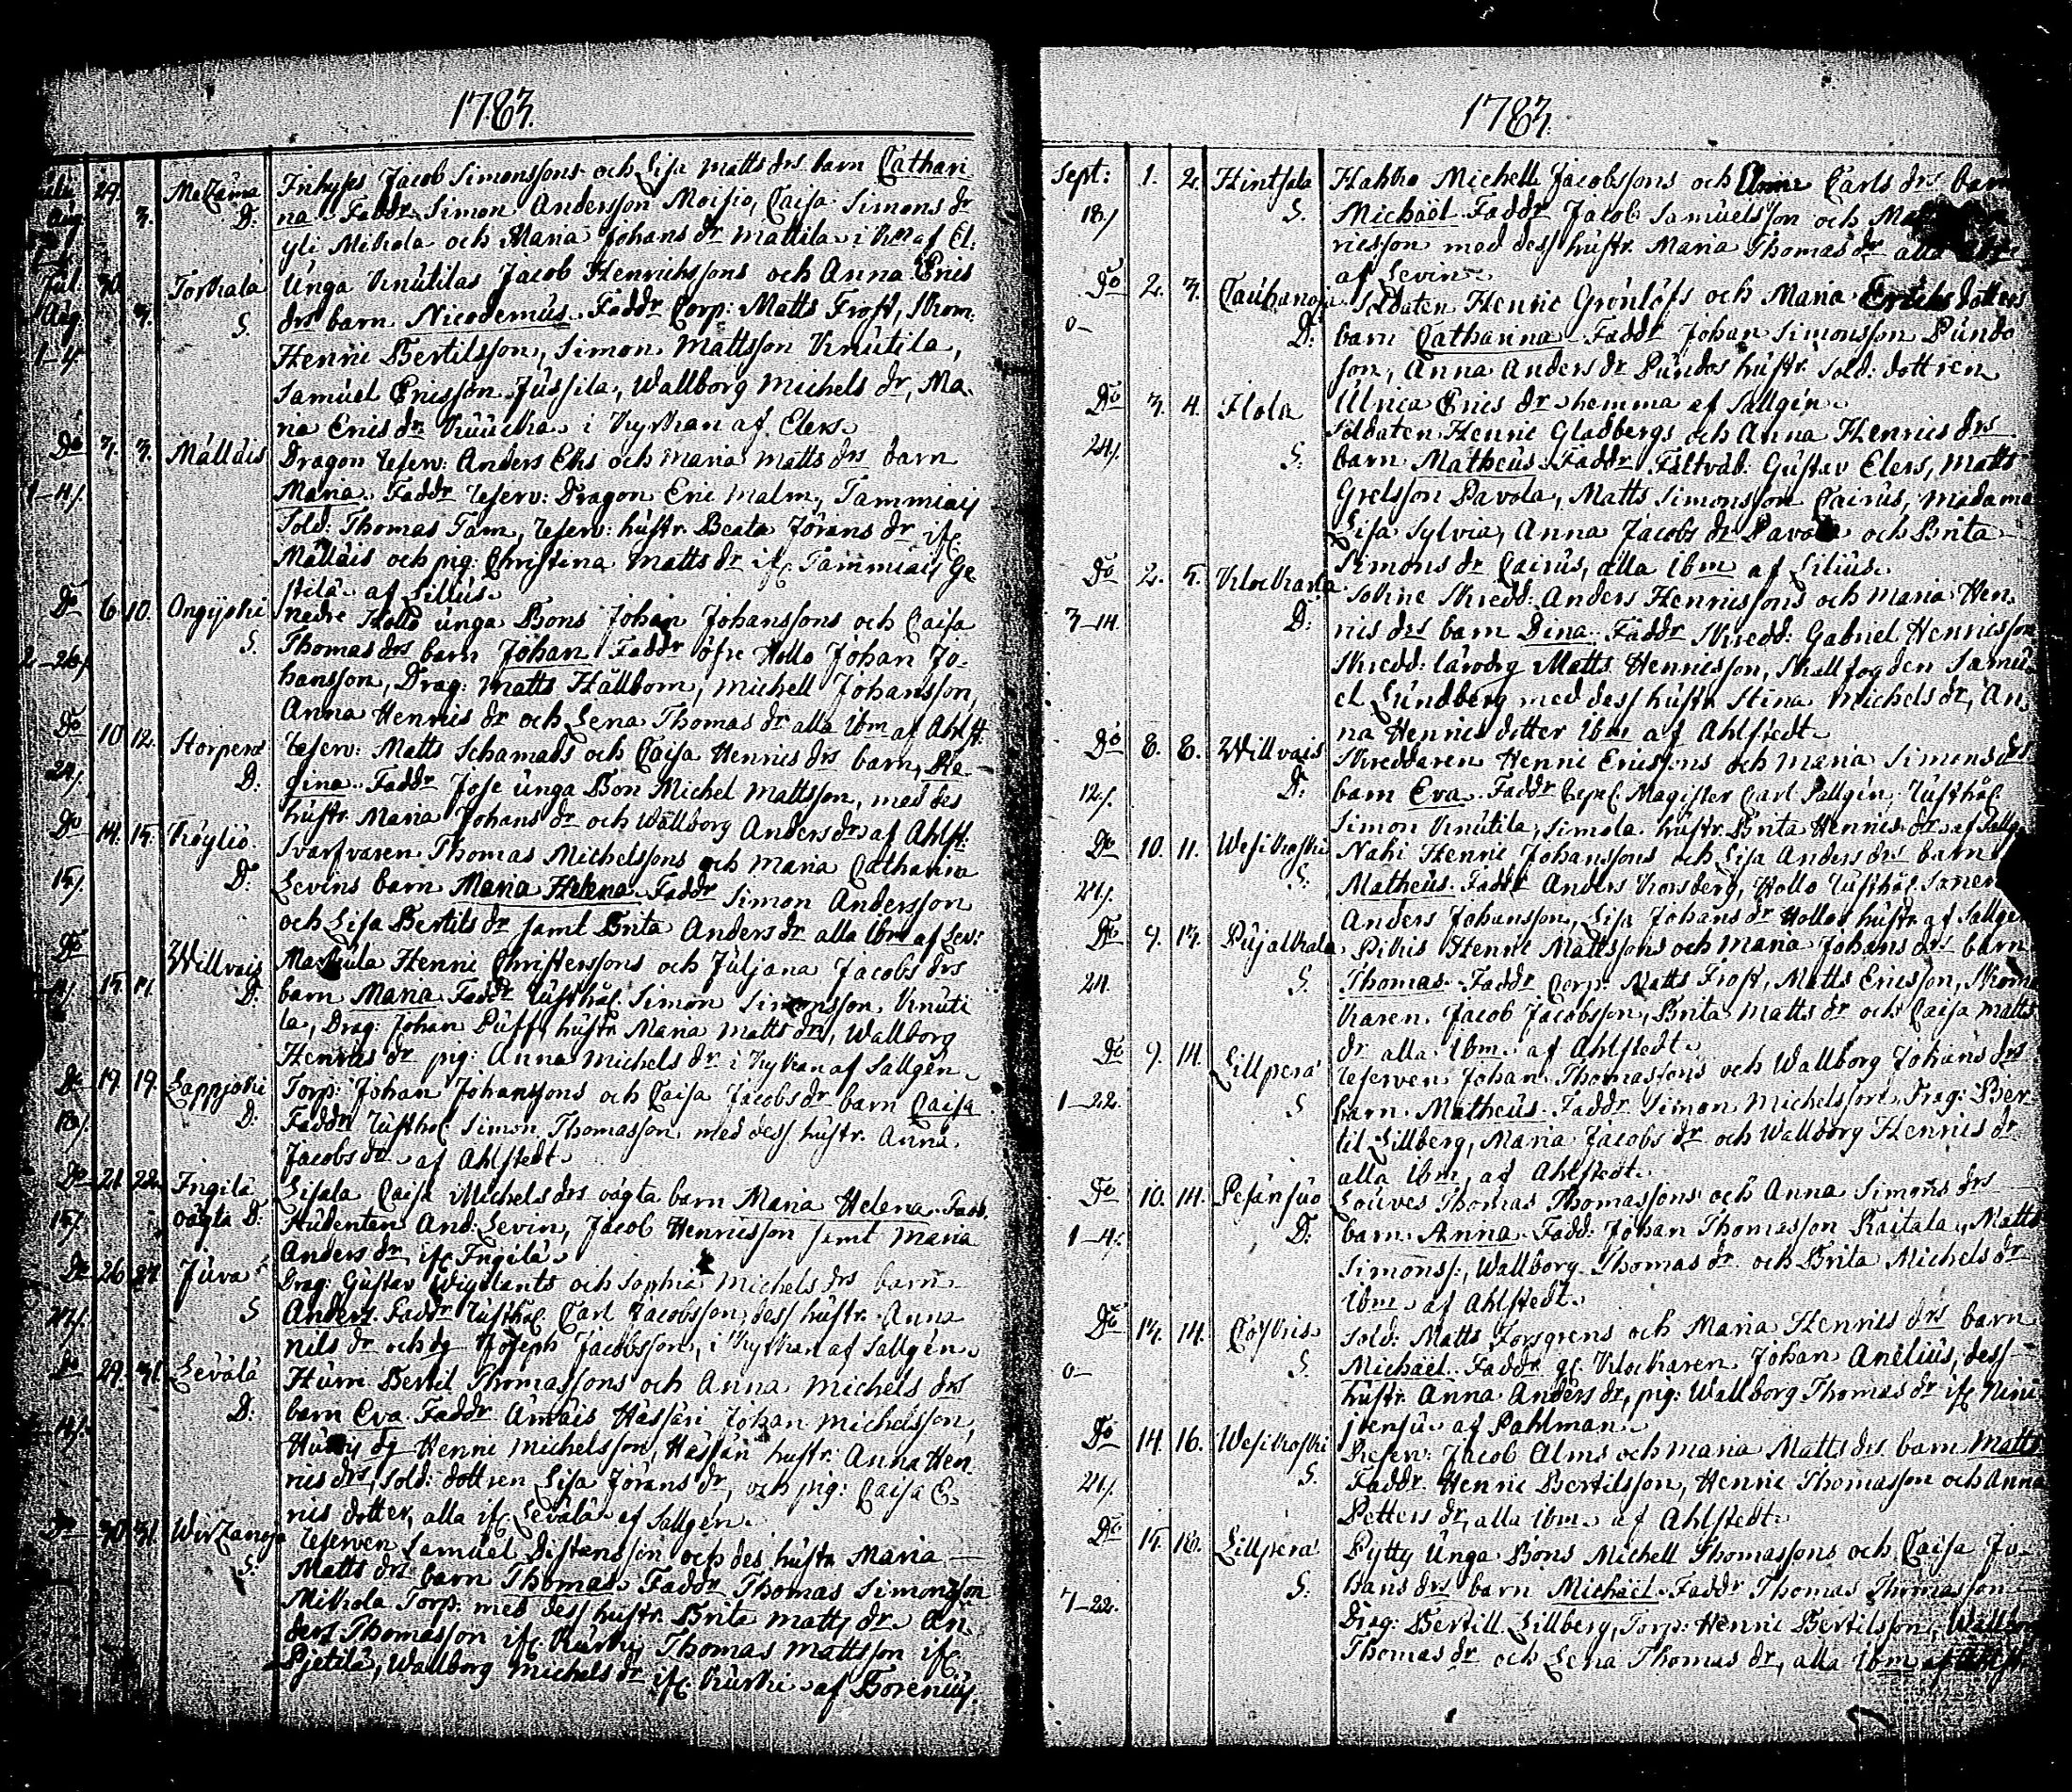 1783.
Julii 29. Metzäma Inhyses Jacob Simonssons och Lisa Matts drs barn Cathari
Aug 3. D: na. Faddr Simon Andersson Moisio, Caisa Simons dr
yli Mikola och Maria Johans dr Mattila i af El:
Jul. 30. Torkala Unga Knutilas Jacob Henrichssons och Anna Erics
Aug. 3. S. drs barn Nicodemus. Faddr Corp: Matts Frost, Skom:
1-4 Henric Bertilsson, Simon Mattsson Knutila,
Samuel Ericsson Jussila, Wallborg Michels dr, Ma-
ria Erics dr i Kyrkan af Elers.
Do 3. 3. Mälläis Dragon Reserv: Anders Eks och Maria Matts drs barn
1-4/. Maria. Faddr Reserv: Dragon Eric Malm, Tammiais
Sold: Thomas Tam, Reserv: hustr. Beata Jörans dr ifr.
Mälläis och pig: Christina Matts dr ifr. Tammiais Ge
stilä af Lilius.
Do 6. 10. Ongijoki nedre Hollo unga Bons Johan Johanssons och Caisa
S. Thomas drs barn Johan. Faddr öfre Hollo Johan Jo-
2-26/. hansson, Drag: Matts Hällbom, Michell Johansson,
Anna Henrics dr och Lena Thomas dr alla ibm af Ahlst.
Do 10 12. Storperä Reserv: Matts Schamads och Caisa Henrics drs barn, Re-
24/. D: gina. Faddr Jose unga Bon Michel Mattsson, med des
hustr. Maria Johans dr och Wallborg Anders dr af Ahlst:
Do 14. 15. Köyliö. Svarfvaren Thomas Michelssons och Maria Catharina
15/. D: Levins barn Maria Helena. Faddr Simon Andersson
och Lisa Bertils dr samt Brita Anders dr alla ibm af Lev:
Do Willvais Henric Christerssons och Juljana Jacobs drs
15. 17. D. barn Maria. Faddr Rusthål. Simon Simonsson, Knuti
la, Drag: Johan Puff, hustr. Maria Matts dr, Wallborg
Henrics dr pig: Anna Michels dr i Kyrkan af Sallgén.
Do 19. 19. Lappijoki Torp: Johan Johanssons och Caisa Jacobs dr barn Caisa
18/. D: Faddr Rusthol. Simon Thomasson med dess hustr. Anna
Jacobs dr af Ahlstedt.
Do 21. 22. Ingilä Lisala Caisa Michels drs oägta barn Maria Helena. Fadd.
15/. oägta D: Studenten And: Levin, Jacob Henricsson samt Maria
Anders dr ifr. Ingilä.
Do 26 27. Juva Drag: Gustav Wigilants och Sophia Michels drs barn
27/. S Anders. Faddr Rusthol. Carl Jacobsson, dess hustr. Anna
nils dr och dg Joseph Jacobsson, i Kyrkan af Sallgén.
Do 29. 31. Levälä Hurri Bertil Thomassons och Anna Michels drs
D: barn Eva. Faddr Hassari Johan Michelsson,
dg Henric Michelsson, Hassari hustr. Anna Hen-
rics drs, Sold: dottren Lisa Jörans dr, och pig: Caisa E-
rics dotter, alla ifr. Levälä af Sallgén.
Do 30. 31. Wirtzanoja Reserven Samuel och des hustr. Maria
S. Matts drs barn Thomas. Faddr Thomas Simonsson
Mikola Torp: med dess hustr. Brita Matts dr. An-
ders Thomasson ifr. Kurki, Thomas Mattsson ifr.
Pjetilä, Wallborg Michels dr ifr. Kurki af Borenius.
1783.
Sept: 1. 2. Hintsala Hakko Michell Jacobssons och Anna Carls drs barn
18/ S. Michaël. Faddr Jacob Samuelsson och
ricsson med dess hustr. Maria Thomas dr alla
af Levin.
Do 2. 3. Cauhanoja Soldaten Henric Grönlöfs och Maria Erichs dotters
0- D: barn Catharina. Faddr Johan Simonsson Pundo
son, Anna Anders dr Pundos hustr. Sold: dottren
Ulrica Erics dr hemma af Sallgén.
Do 3. 4. Ilola Soldaten Henric Gladbergs och Anna Henrics drs
24/. S: barn Matheus. Faddr Fältväb: Gustav Elers, Matts
Grelsson Pavola, Matts Simonsson Cairus, Madama
Lisa Sylvia, Anna Jacobs dr Pavola och Brita
Simons dr Cairus, alla ibm af Lilius.
Do 2. 5. Klockarla Sokne Skredd: Anders Henricssons och Maria Hen-
3-14. D: rics drs barn Dina. Faddr Skredd: Gabriel Henricsson
Skredd: lärodrg Matts Henricsson, Skallfogden Samu-
el Lundberg med dess hustr. Stina Michels dr, An-
na Henrics dotter ibm af Ahlstedt.
Do 8. 8. Willvais Skreddaren Henric Ericssons och Maria Simons drs
12/. D: barn Eva. Faddr Magister Carl Sallgén, Rusthål.
Simon Knutila, Simola hustr. Brita Henrics dr af Sallg
Do 10. 11. Wesikoski Nahi Henric Johanssons och Lisa Anders drs barn
24/. S. Matheus. Faddr Anders Korsberg, Hollo Rusthål. Sonen
Anders Johansson, Lisa Johans dr Hollos hustr. af Sallgén
Do 9. 13. Pujalkala Pikis Henric Mattssons och Maria Johans drs barn
24. S Thomas. Faddr Corp: Matts Frost, Matts Ericsson, Skoma
karen Jacob Jacobsson, Brita Matts dr och Caisa Matts
dr alla ibm. af Ahlstedt.
Do 9. 14. Lillperä Reserven Johan Thomassons och Wallborg Johans drs
1-22. S barn. Matheus. Faddr Simon Michelsson. Drag: Ber-
til Lillberg, Maria Jacobs dr och Wallborg Henrics dr
alla ibm, af Ahlstedt.
Do 10. 14. Pesänsuo Louves Thomas Thomassons och Anna Simons drs
1-4/. D: barn. Anna. Fadd: Johan Thomasson Raitala, Matts
Simonss:, Wallborg Thomas dr och Brita Michels dr
ibm af Ahlstedt.
Do 13. 14. Cöykris Sold: Matts Forsgrens och Maria Henrics drs barn
0- S. Michaël. Faddr gl. Klockaren Johan Anelius, dess
hustr. Anna Anders dr, pig: Wallborg Thomas dr ifr. Nini
jensu af Pahlman.
Do 14. 16. Wesikoski Reserv: Jacob Alms och Maria Matts drs barn Matts
24/. S. Faddr. Henric Bertilsson, Henric Thomasson och Anna
Petters dr, alla ibm. af Ahlstedt.
Do 15. 18. Lillperä Pytty Unga Bons Michell Thomassons och Caisa Jo-
7-22. S. hans drs barn Michaël. Faddr Thomas Thomasson
Drag: Bertill Lillberg, Torp: Henric Bertilsson, Wallborg
Thomas dr och Lena Thomas dr, alla ibm af Ahlst.